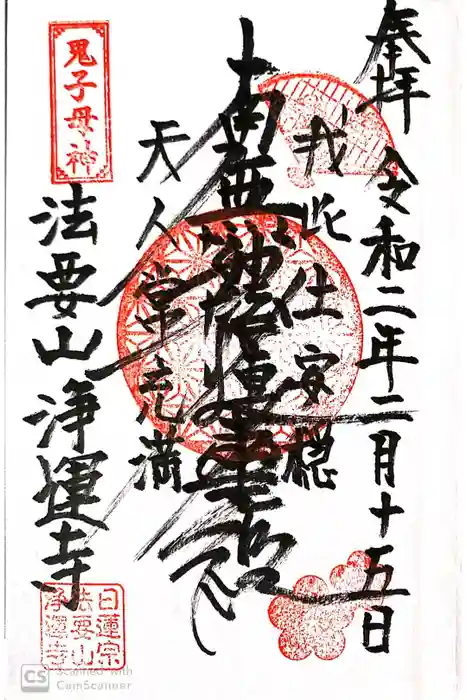 奉拝
令和二年二月十五日
我此土安穏
南無妙法蓮華経
天人常充満
鬼子母神
法要山浄運寺
日蓮宗
法要山
浄運寺
CS
Scanned with
CamScanner